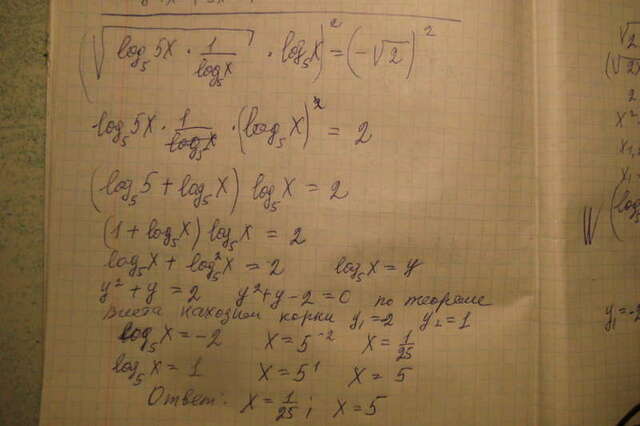 (√(log₅5x · 1/log₅x) · log₅x)² = (-√2)²
log₅5x · 1/log₅x · (log₅x)² = 2
(log₅5 + log₅x) log₅x = 2
(1 + log₅x) log₅x = 2
log₅x + log₅²x = 2 log₅x = y
y² + y = 2 y² + y - 2 = 0 по теореме
Виета находим корни y₁ = -2 y₂ = 1
log₅x = -2 x = 5⁻² x = 1/25
log₅x = 1 x = 5¹ x = 5
Ответ: x = 1/25; x = 5